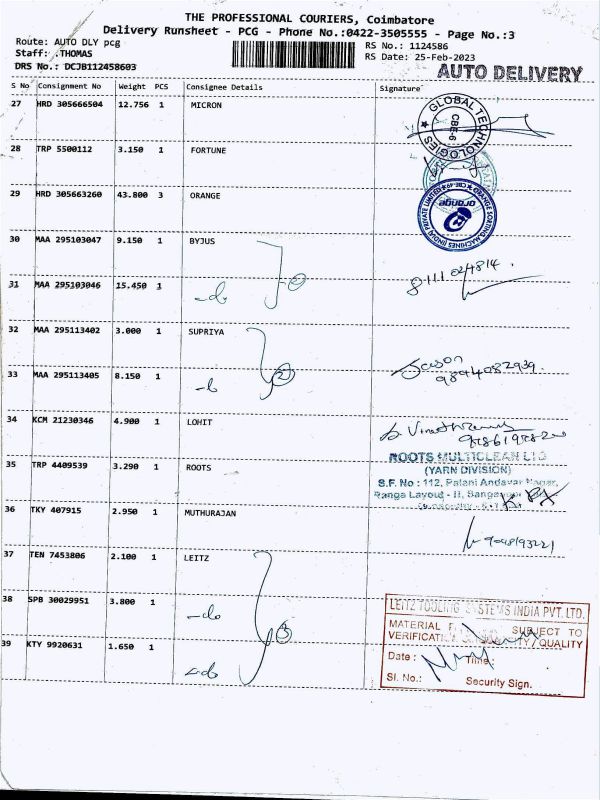 THE PROFESSIONAL COURIERS, Coimbatore
Delivery Runsheet - PCG - Phone No.:0422-3505555 - Page No.:3
Route: AUTO DLY pcg
RS No.: 1124586
Staff: .THOMAS
RS Date: 25-Feb-2023
DRS No.: DCJB112458603
AUTO DELIVERY
S No Consignment No Weight PCS Consignee Details Signature
27 HRD 305666504 12.756 1 MICRON
GLOBAL TECHNOLOGIES
CBE-6
28 TRP 5500112 3.150 1 FORTUNE
29 HRD 305663260 43.800 3 ORANGE
ORANGE SORTING MACHINES (INDIA) PRIVATE LIMITED
orange
30 MAA 295103047 9.150 1 BYJUS
31 MAA 295103046 15.450 1 -do 2
32 MAA 295113402 3.000 1 SUPRIYA
9894082939.
33 MAA 295113405 8.150 1 2
34 KCM 21230346 4.900 1 LOHIT
ROOTS MULTICLEAN LTD
(YARN DIVISION)
35 TRP 4409539 3.290 1 ROOTS
S.F. No : 112, Palani Andavar Nagar,
Ranga Layout - II,
36 TKY 407915 2.950 1 MUTHURAJAN
37 TEN 7453806 2.100 1 LEITZ
38 SPB 30029951 3.800 1 -do 3
39 KTY 9920631 1.650 1 -do
LEITZ TOOLING SYSTEMS INDIA PVT. LTD.
MATERIAL SUBJECT TO
VERIFICATION QUALITY
Date : Time:
Sl. No.: Security Sign.